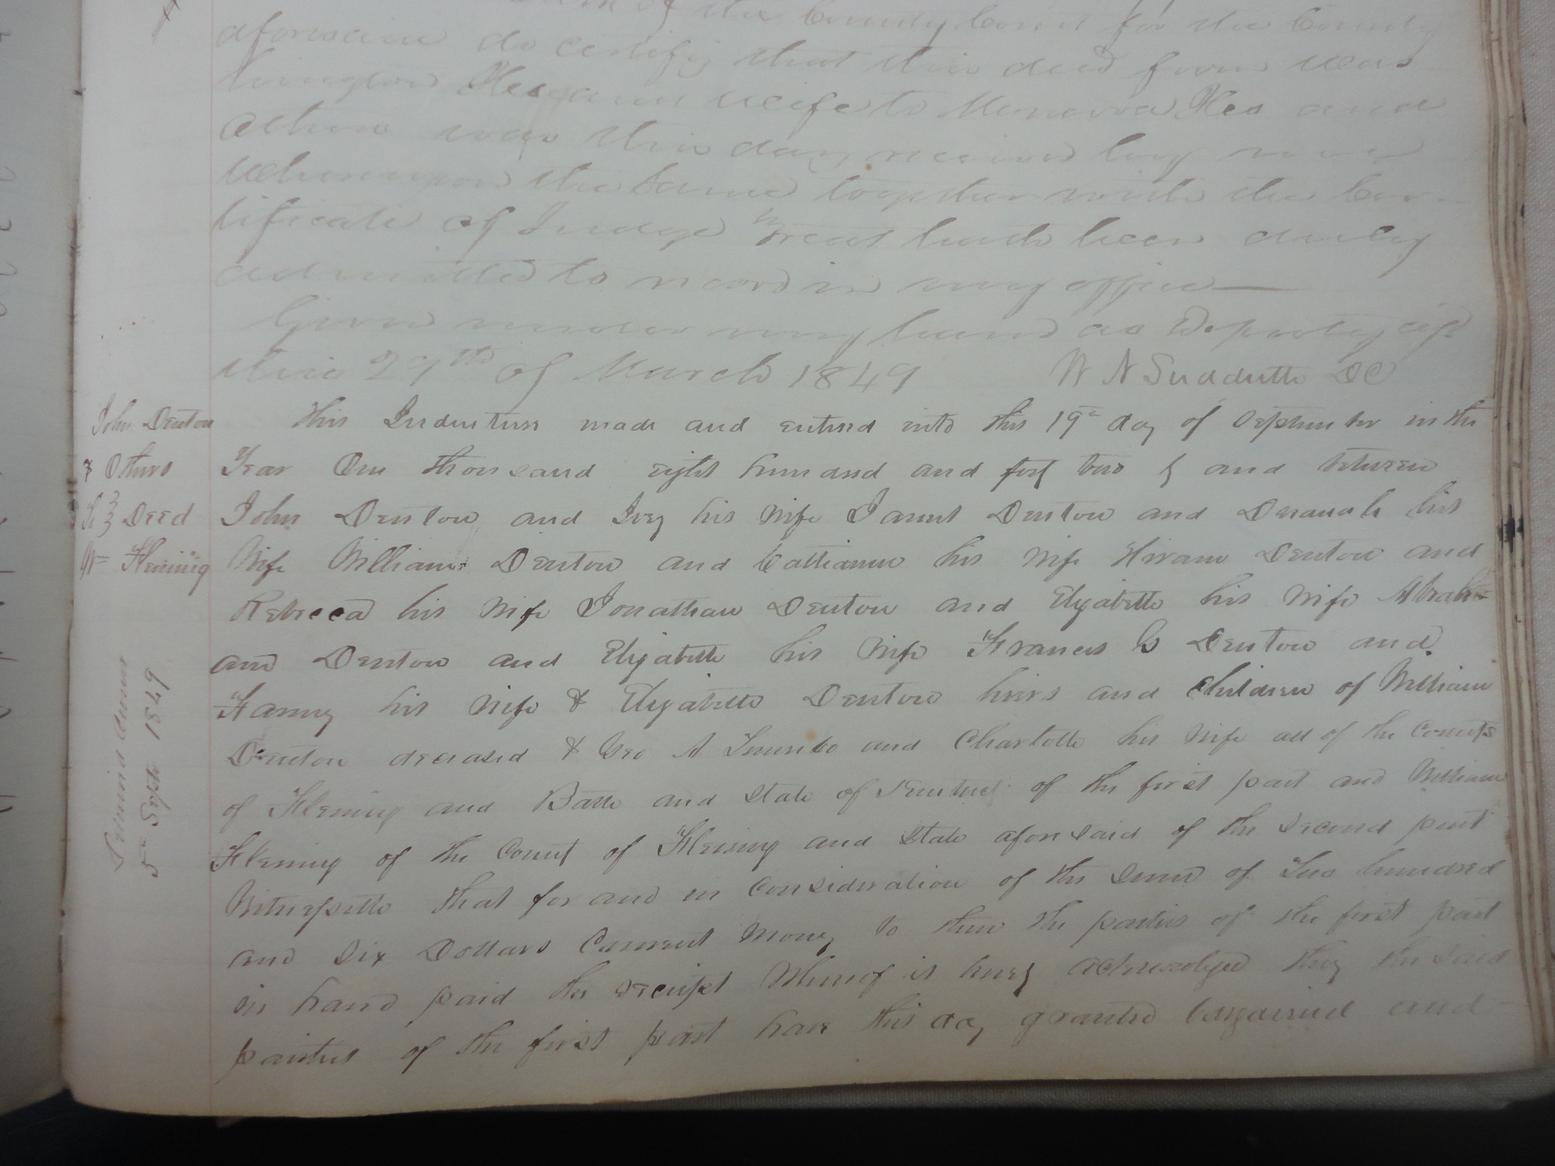 of the County Court for the County
aforesaid do certify that this deed from Was
hington Hes and wife to Minerva Hes and
others was this day received by me
Whereupon the same together with the Cer-
tificate of Judge hath been duly
admitted to record in my office
Given under my hand as Deputy
this 27th of March 1849 W N Sudduth DC
John Denton
& Others
To } Deed
Wm Fleming
This Indenture made and entered into this 19th day of September in the
Year One thousand eight hundred and forty two by and between
John Denton and Ivy his Wife James Denton and his
Wife William Denton and his Wife Hiram Denton and
Rebecca his Wife Jonathan Denton and Elizabeth his Wife Abrah=
am Denton and Elizabeth his Wife Frances G Denton and
Fanny his Wife & Elizabeth Denton heirs and children of William
Denton deceased & Geo A and Charlotte his Wife all of the County
of Fleming and Bath and State of Kentucky of the first part and William
Fleming of the County of Fleming and State aforesaid of the second part
Witnesseth that for and in consideration of the sum of Two hundred
and six Dollars Current Money to them the parties of the first part
in hand paid the receipt Whereof is hereby acknowledged they the said
parties of the first part have this day granted bargained and
5th Sept 1849